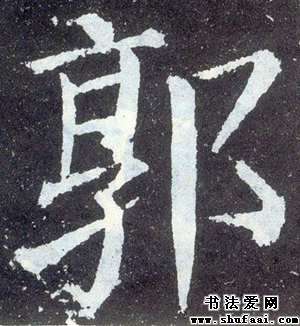 郭
书法爱网
www.shufaai.com